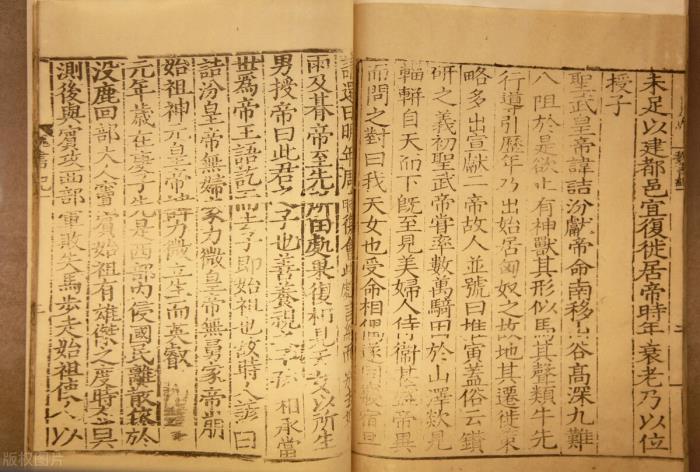 未足以建都邑宜復徙居帝時年衰老乃以位
授子
聖武皇帝諱詰汾獻帝命南移山谷高深九難
八阻於是欲止有神獸其形似馬其聲類牛先
行導引歷年乃出始居匈奴之故地其遷徙策
略多出宣獻二帝故人並號曰推寅蓋俗云鑽
研之義初聖武帝嘗率數萬騎田於山澤欻見
輜軿自天而下既至見美婦人侍衛甚盛帝異
而問之對曰我天女也受命相偶遂同寢宿旦
請還曰明年周時復會此處
雨及朞帝至先所田處果復相見天女以所生
男授帝曰此君之子也善養視之子孫相承當
世為帝王語訖而去子即始祖也故時人諺曰
詰汾皇帝無婦家力微皇帝無舅家帝崩
始祖神元皇帝諱力微立生而英叡
元年歲在庚子先是西部內侵國民離散依於
没鹿回部大人竇賓始祖有雄傑之度時人莫
測後與賓攻西部軍敗失馬步走始祖使人以
版权图片